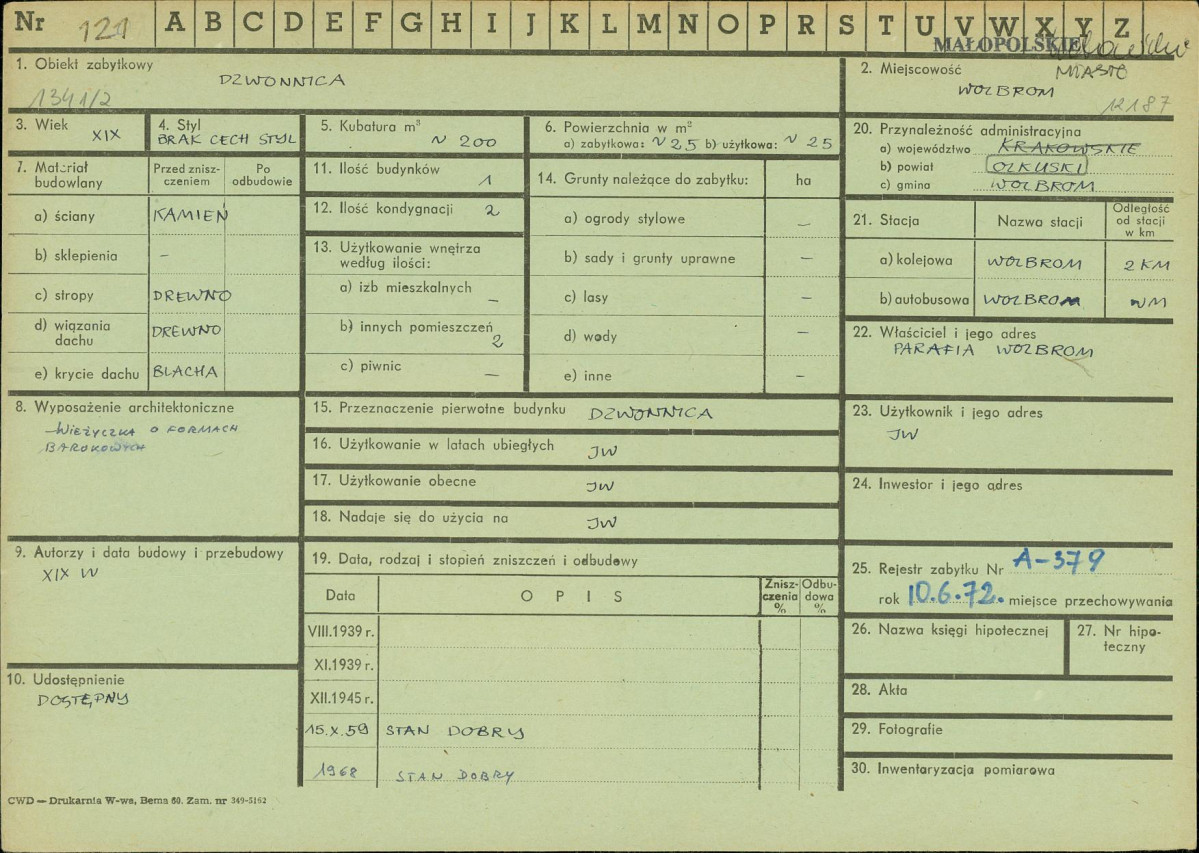 Nr 121 A B C D E F G H I J K L M N O P R S T U V W X Y Z
MAŁOPOLSKIE
1. Obiekt zabytkowy
DZWONNICA
1341/2
2. Miejscowość
MIASTO
WOLBROM
12187
3. Wiek
XIX
4. Styl
BRAK CECH STYL
5. Kubatura m³
~ 200
6. Powierzchnia w m²
a) zabytkowa: ~25 b) użytkowa: ~25
7. Materiał budowlany
Przed zniszczeniem
Po odbudowie
a) ściany KAMIEŃ
b) sklepienia –
c) stropy DREWNO
d) wiązania dachu DREWNO
e) krycie dachu BLACHA
8. Wyposażenie architektoniczne
WIEŻYCZKA O FORMACH
BAROKOWYCH
9. Autorzy i data budowy i przebudowy
XIX W
10. Udostępnienie
DOSTĘPNY
11. Ilość budynków 1
12. Ilość kondygnacji 2
13. Użytkowanie wnętrza
według ilości:
a) izb mieszkalnych –
b) innych pomieszczeń 2
c) piwnic –
14. Grunty należące do zabytku: ha
a) ogrody stylowe –
b) sady i grunty uprawne –
c) lasy –
d) wody –
e) inne –
15. Przeznaczenie pierwotne budynku DZWONNICA
16. Użytkowanie w latach ubiegłych JW
17. Użytkowanie obecne JW
18. Nadaje się do użycia na JW
19. Data, rodzaj i stopień zniszczeń i odbudowy
Data OPIS Zniszczenia % Odbudowa %
VIII.1939 r.
XI.1939 r.
XII.1945 r.
15.X.59 STAN DOBRY
1968 STAN DOBRY
20. Przynależność administracyjna
a) województwo KRAKOWSKIE
b) powiat OLKUSKI
c) gmina WOLBROM
21. Stacja Nazwa stacji Odległość od stacji w km
a) kolejowa WOLBROM 2 KM
b) autobusowa WOLBROM
22. Właściciel i jego adres
PARAFIA WOLBROM
23. Użytkownik i jego adres
JW
24. Inwestor i jego adres
25. Rejestr zabytku Nr A-379
rok 10.6.72. miejsce przechowywania
26. Nazwa księgi hipotecznej
27. Nr hipoteczny
28. Akta
29. Fotografie
30. Inwentaryzacja pomiarowa
CWD — Drukarnia W-wa, Bema 60. Zam. nr 349-5162